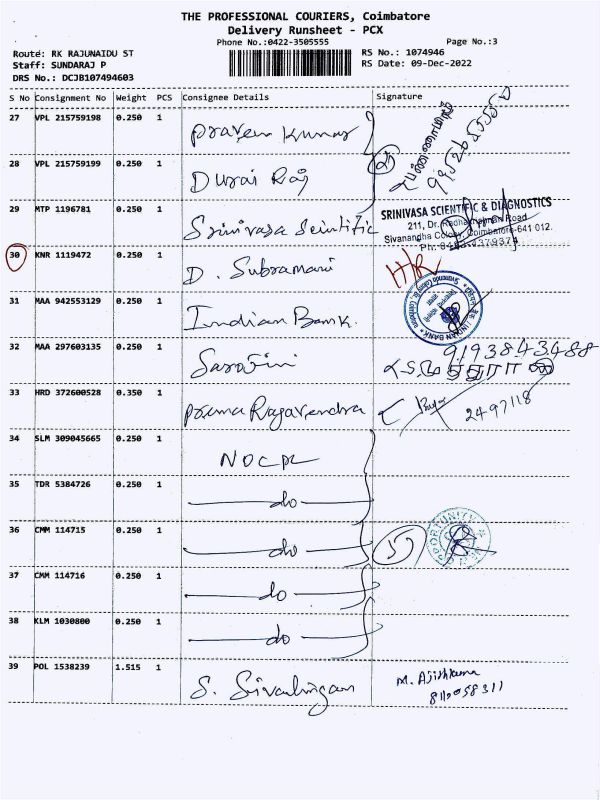 THE PROFESSIONAL COURIERS, Coimbatore
Delivery Runsheet - PCX
Phone No.:0422-3505555
Page No.:3
Route: RK RAJUNAIDU ST
Staff: SUNDARAJ P
DRS No.: DCJB107494603
RS No.: 1074946
RS Date: 09-Dec-2022
S No Consignment No Weight PCS Consignee Details Signature
27 VPL 215759198 0.250 1 Praveen Kumar
28 VPL 215759199 0.250 1 Durai Raj
29 MTP 1196781 0.250 1 Srinivasa Scintific
SRINIVASA SCIENTIFIC & DIAGNOSTICS
211, Dr. Radhakrishnan Road
Sivanandha Colony, Coimbatore-641 012.
Ph: 0422-4379374
30 KNR 1119472 0.250 1 D. Subramani
31 MAA 942553129 0.250 1 Indian Bank.
INDIAN BANK
32 MAA 297603135 0.250 1 Sarojini 9193843488
33 HRD 372600528 0.350 1 Prema Ragavendra 2497118
34 SLM 309045665 0.250 1 NOCPL
35 TDR 5384726 0.250 1 do
36 CMM 114715 0.250 1 do
OPPORTUNITY
37 CMM 114716 0.250 1 do
38 KLM 1030800 0.250 1 do
39 POL 1538239 1.515 1 S. Sivalingam M. Ajithkumar